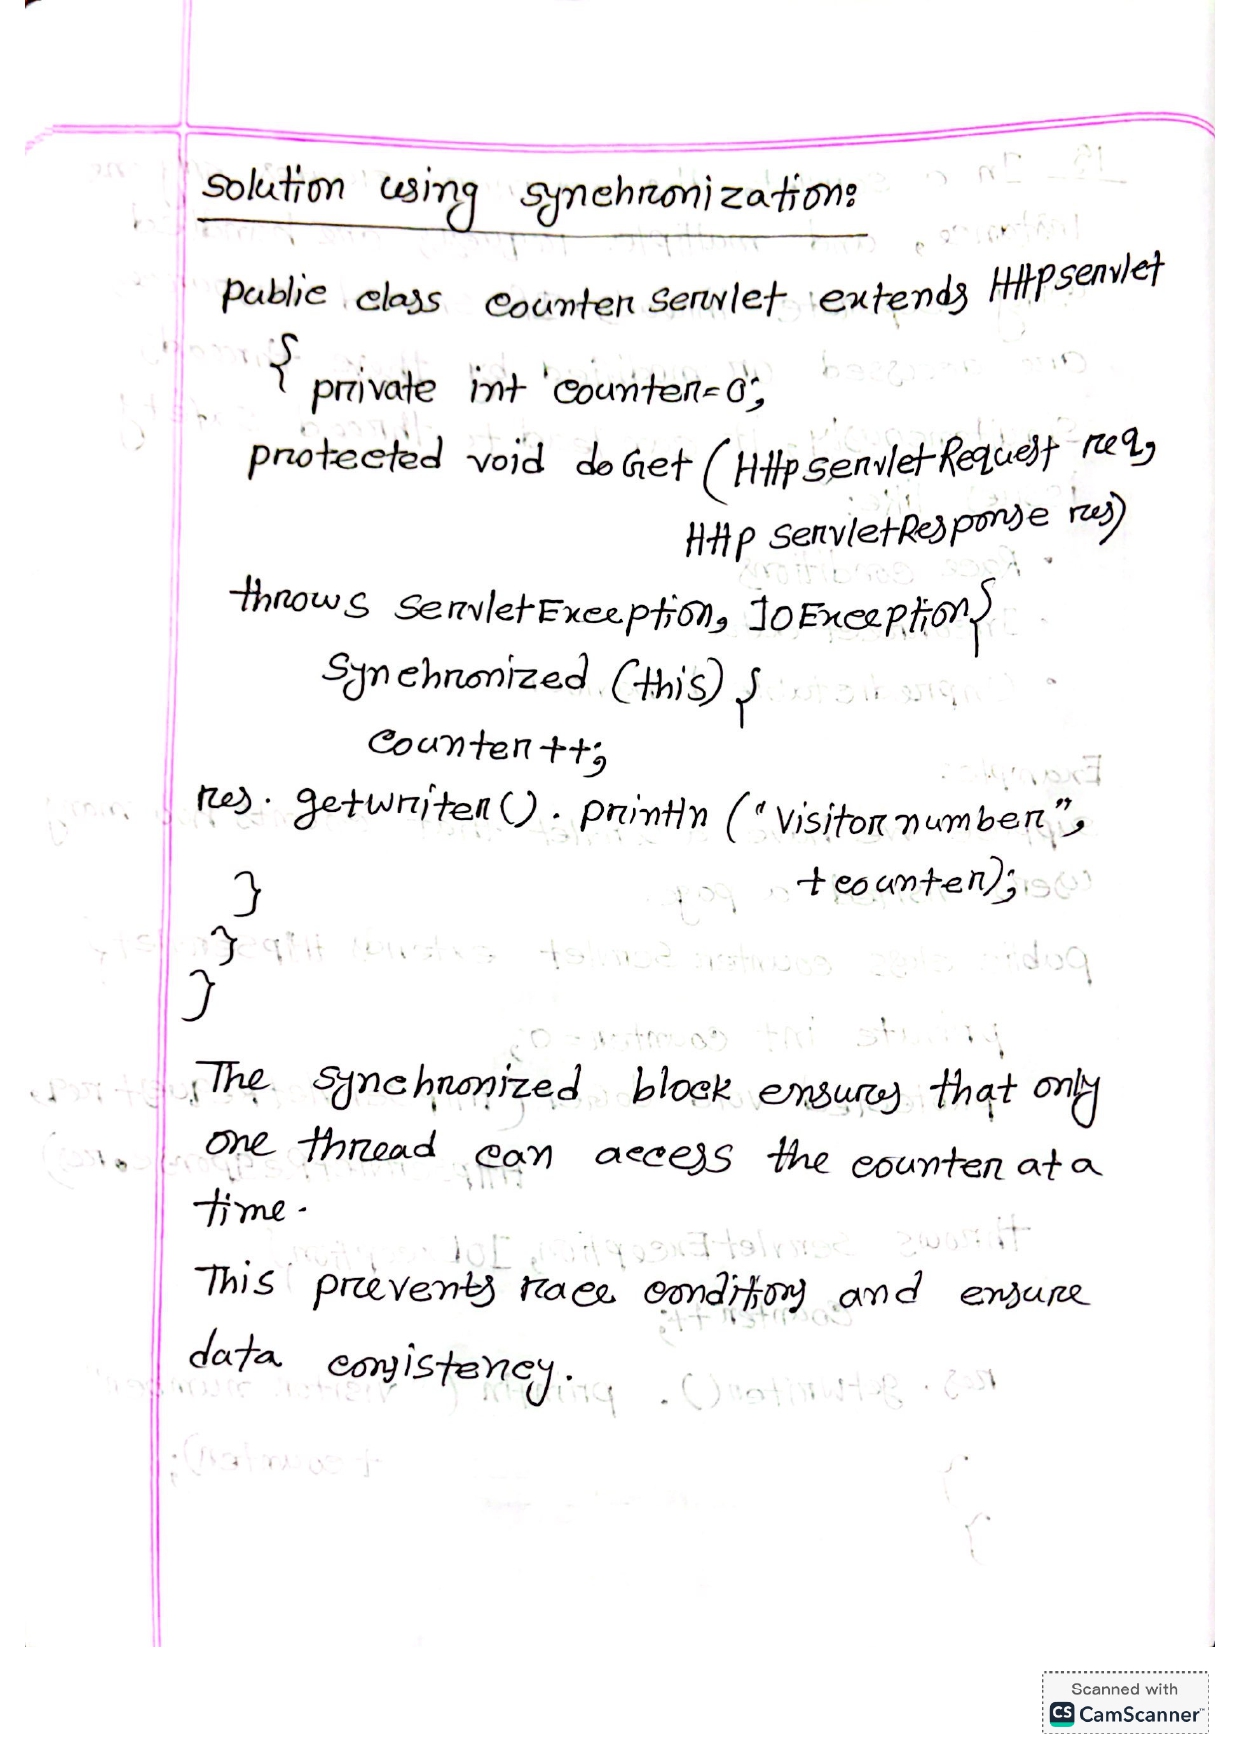 solution using synchronization:
public class counter servlet extends Httpservlet
{ private int counter=0;
protected void doGet (HttpservletRequest req,
Http servletResponse res)
throws servletException, IOException{
Synchronized (this) {
counter++;
res. getwriter(). println ("visitor number",
+counter);
}
}
}
The synchronized block ensures that only
one thread can access the counter at a
time.
This prevents race conditions and ensure
data consistency.
Scanned with
CS CamScanner